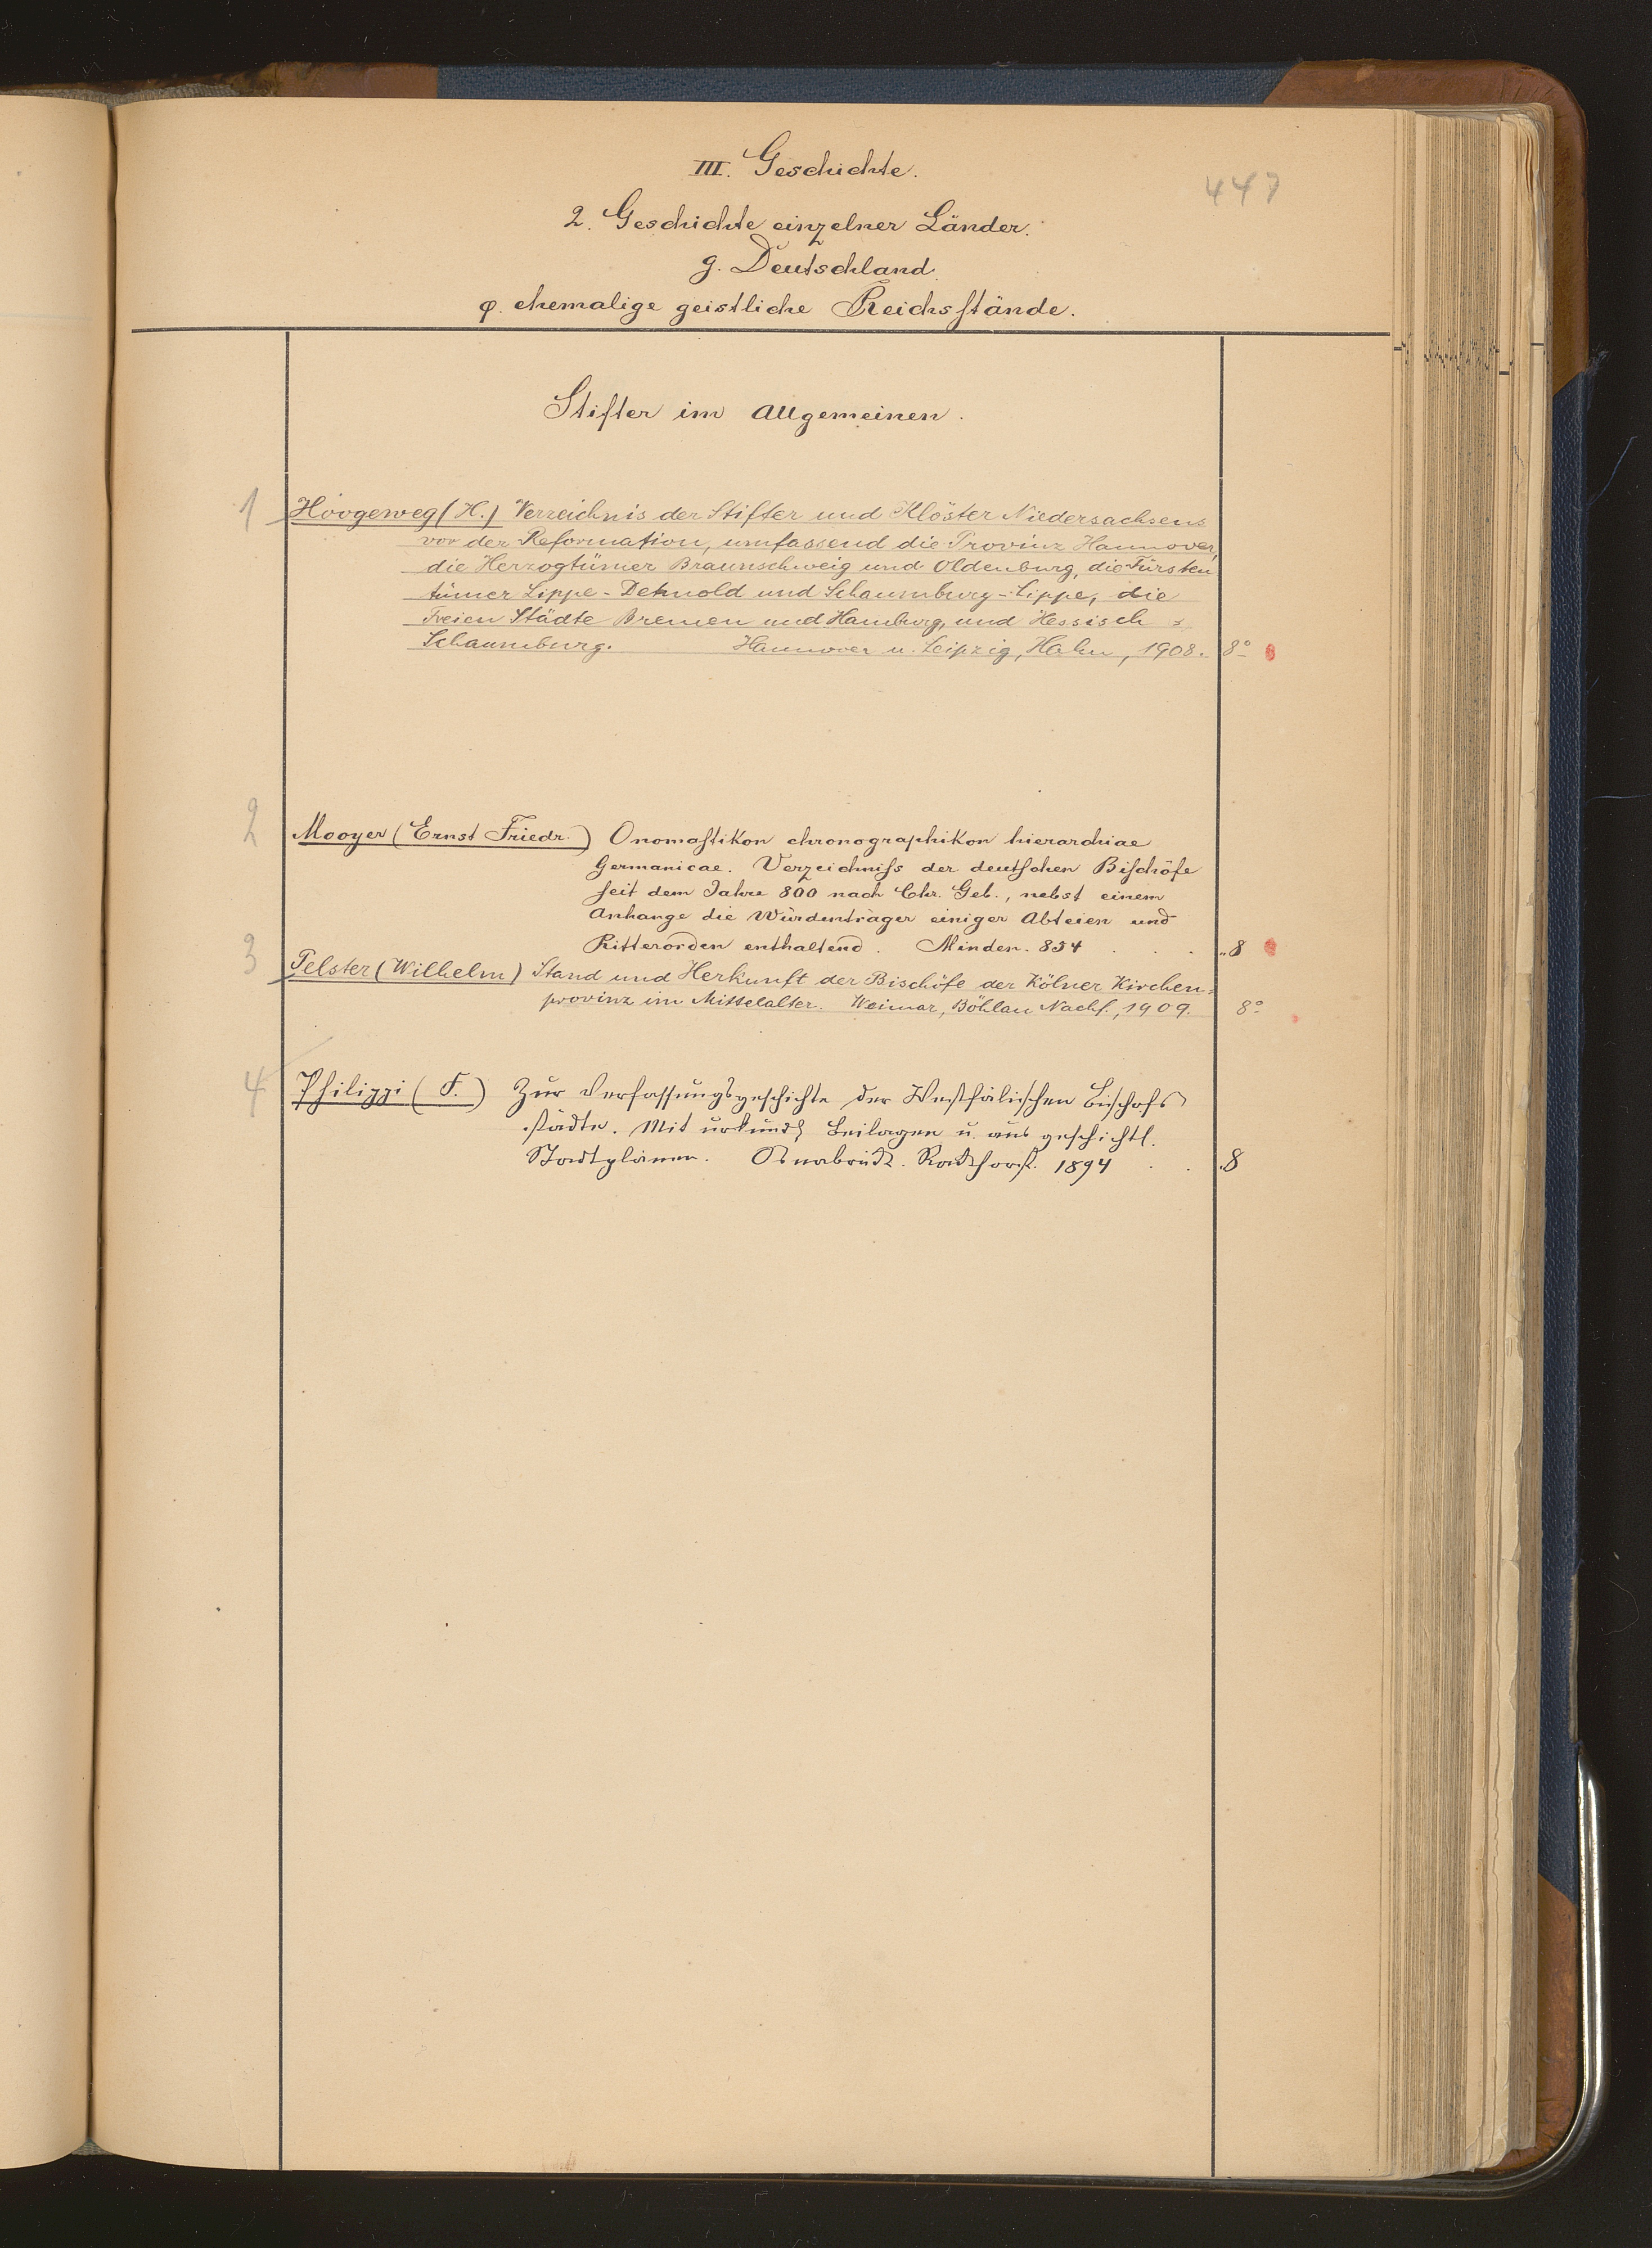 III. Geschichte.
447
2. Geschichte einzelner Länder.
g. Deutschland.
φ. ehemalige geistliche Reichsstände.
Stifter im Allgemeinen.
1 Hoogeweg (H.) Verzeichnis der Stifter und Klöster Niedersachsens
vor der Reformation, umfassend die Provinz Hannover,
die Herzogtümer Braunschweig und Oldenburg, die Fürsten
tümer Lippe-Detmold und Schaumburg-Lippe, die
Freien Städte Bremen und Hamburg, und Hessisch =
Schaumburg. Hannover u. Leipzig, Hahn, 1908. 8°
2 Mooyer (Ernst Friedr.) Onomastikon chronographikon hierarchiae
Germanicae. Verzeichniss der deutschen Bischöfe
seit dem Jahre 800 nach Chr. Geb., nebst einem
Anhange die Würdenträger einiger Abteien und
Ritterorden enthaltend. Minden. 854 . . . 8
3 Pelster (Wilhelm) Stand und Herkunft der Bischöfe der Kölner Kirchen=
provinz im Mittelalter. Weimar, Böhlau Nachf., 1909. 8°
4 Philippi (F.) Zur Verfassungsgeschichte der Westfälischen Bischofs
städte. Mit urkundl. Beilagen u. aus geschichtl.
Stadtplänen. Osnabrück. Rackhorst. 1894 . . 8